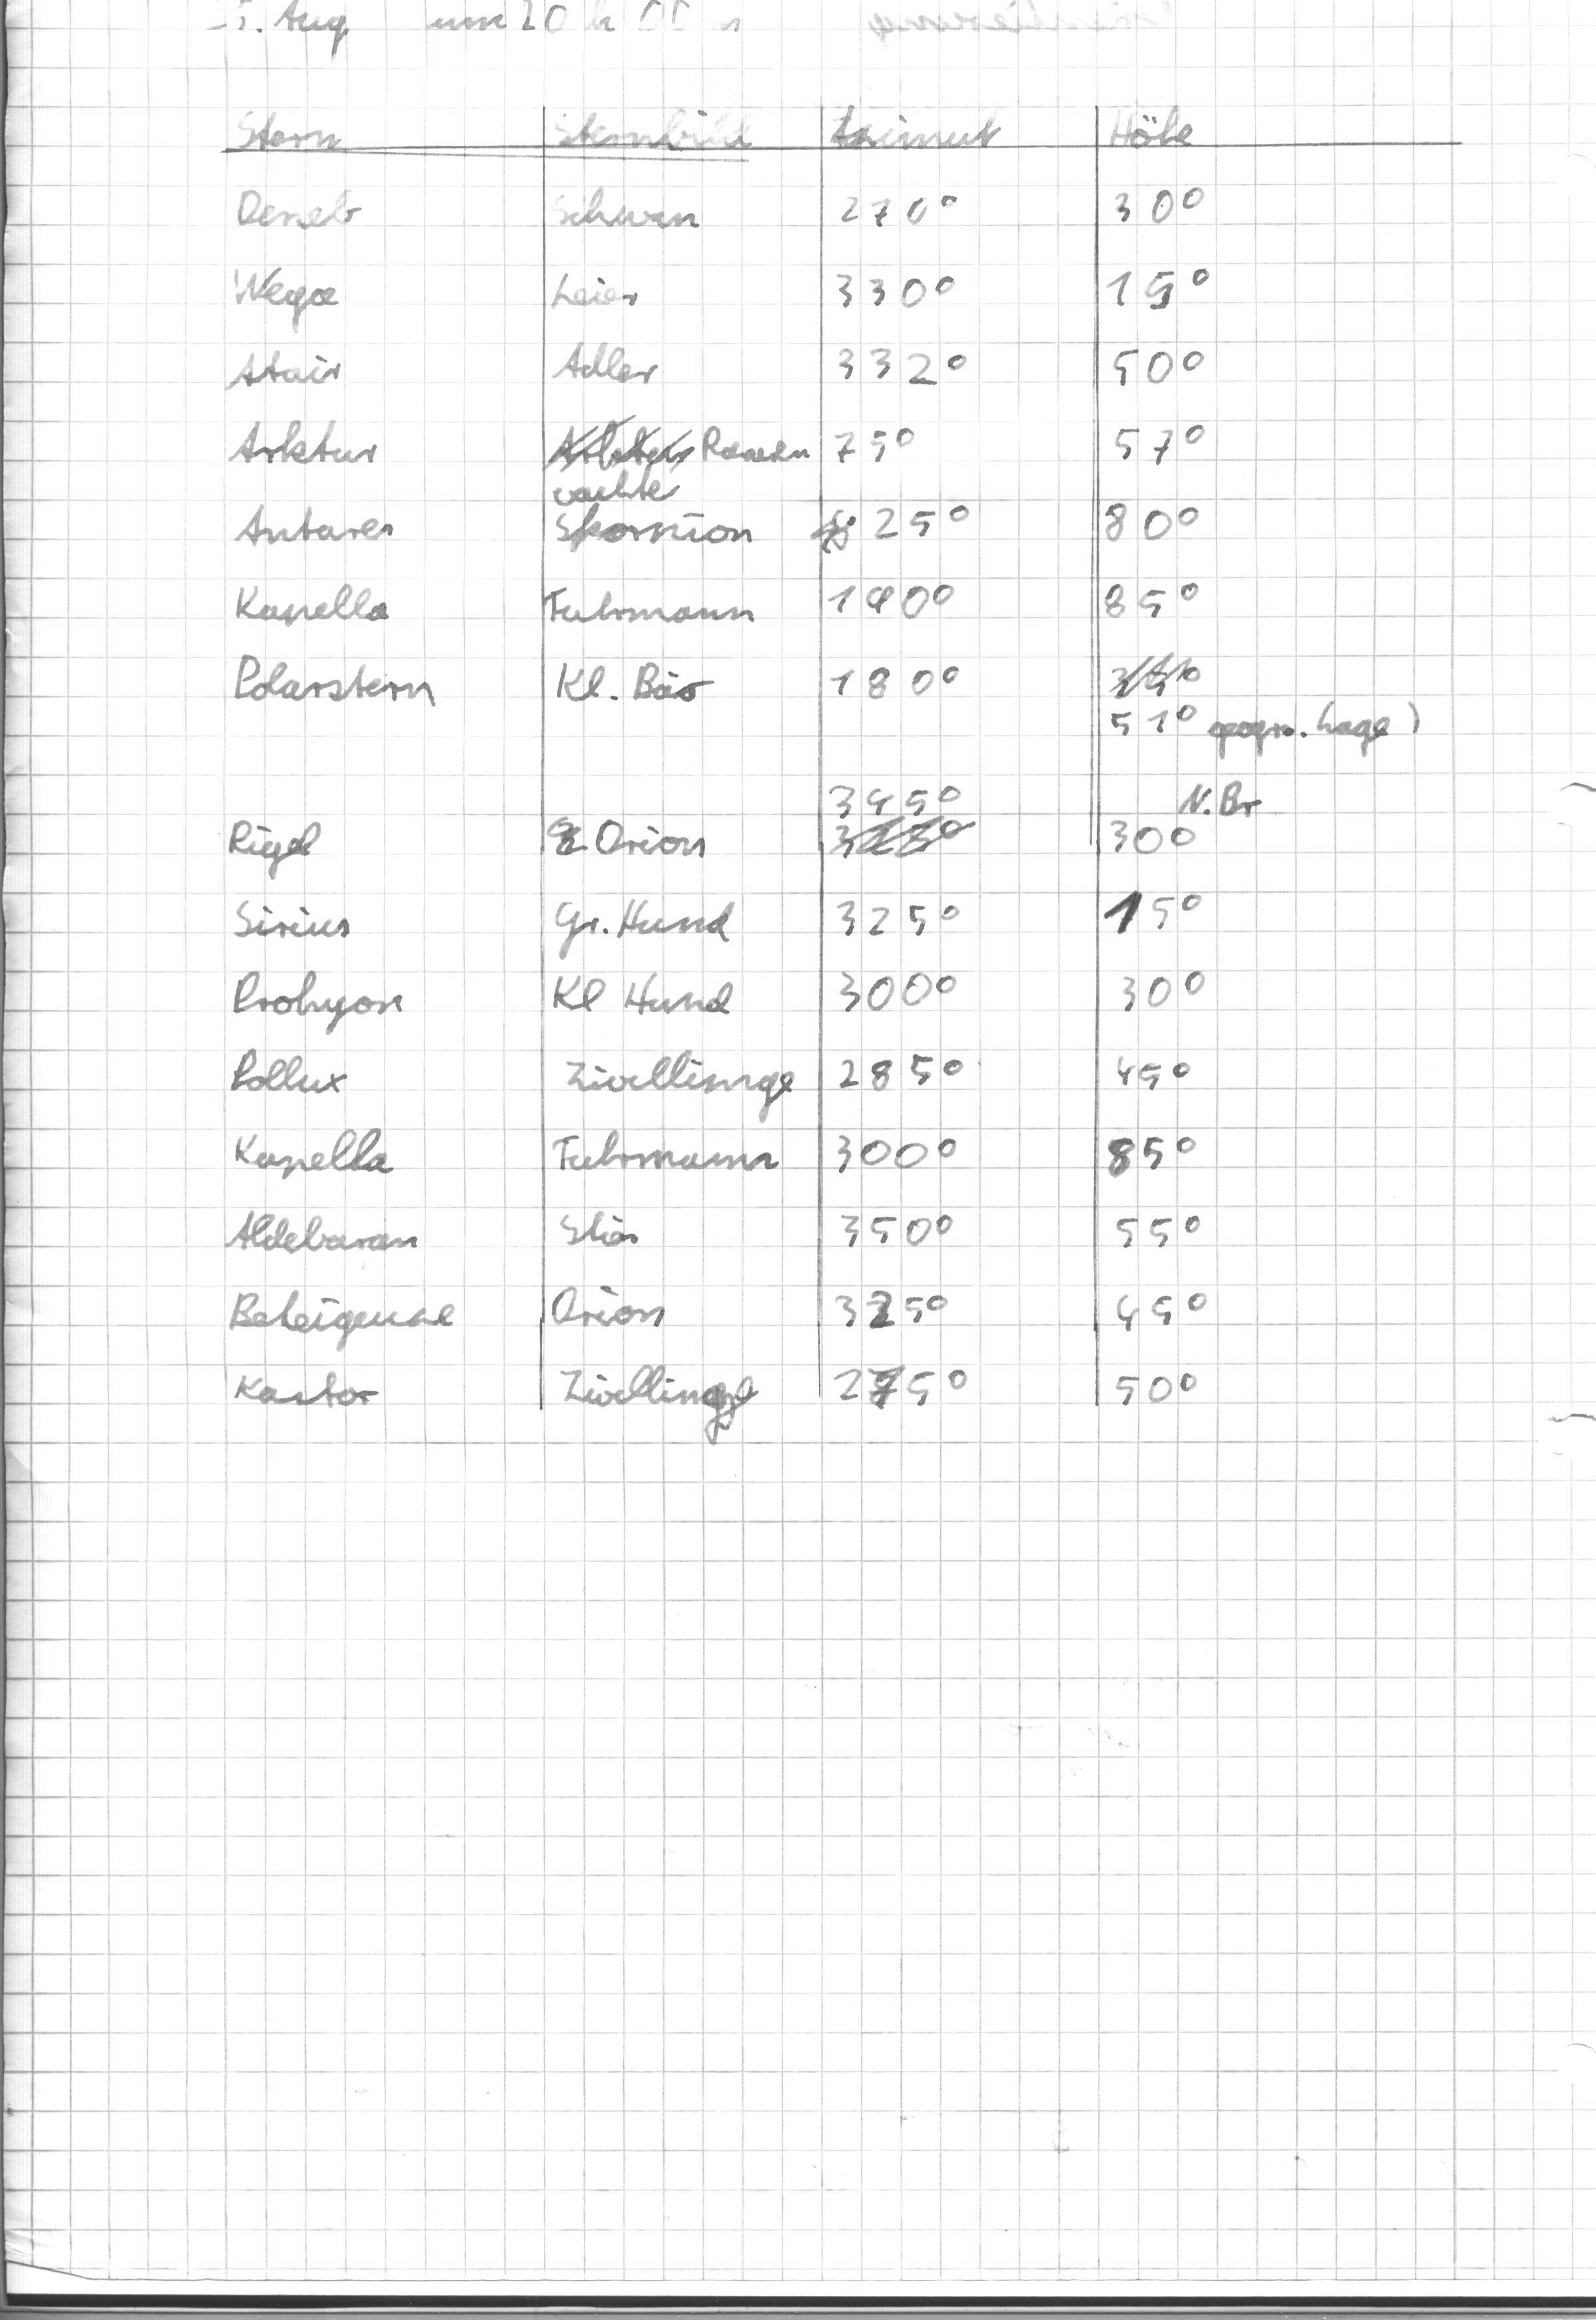 5. Aug um 20 h 00 m
Stern Sternbild Azimut Höhe
Deneb Schwan 270° 30°
Wega Leier 330° 15°
Atair Adler 332° 50°
Arktur 75° 57°
Antares Skorpion 25° 80°
Kapella Fuhrmann 140° 85°
Polarstern Kl. Bär 180°
51° geogr. Lage)
345° N.Br
Rigel Orion 30°
Sirius Gr. Hund 325° 15°
Prokyon Kl Hund 300° 30°
Pollux Zwillinge 285° 45°
Kapella Fuhrmann 300° 85°
Aldebaran Stier 350° 55°
Beteigeuze Orion 325° 45°
Kastor Zwillinge 275° 50°